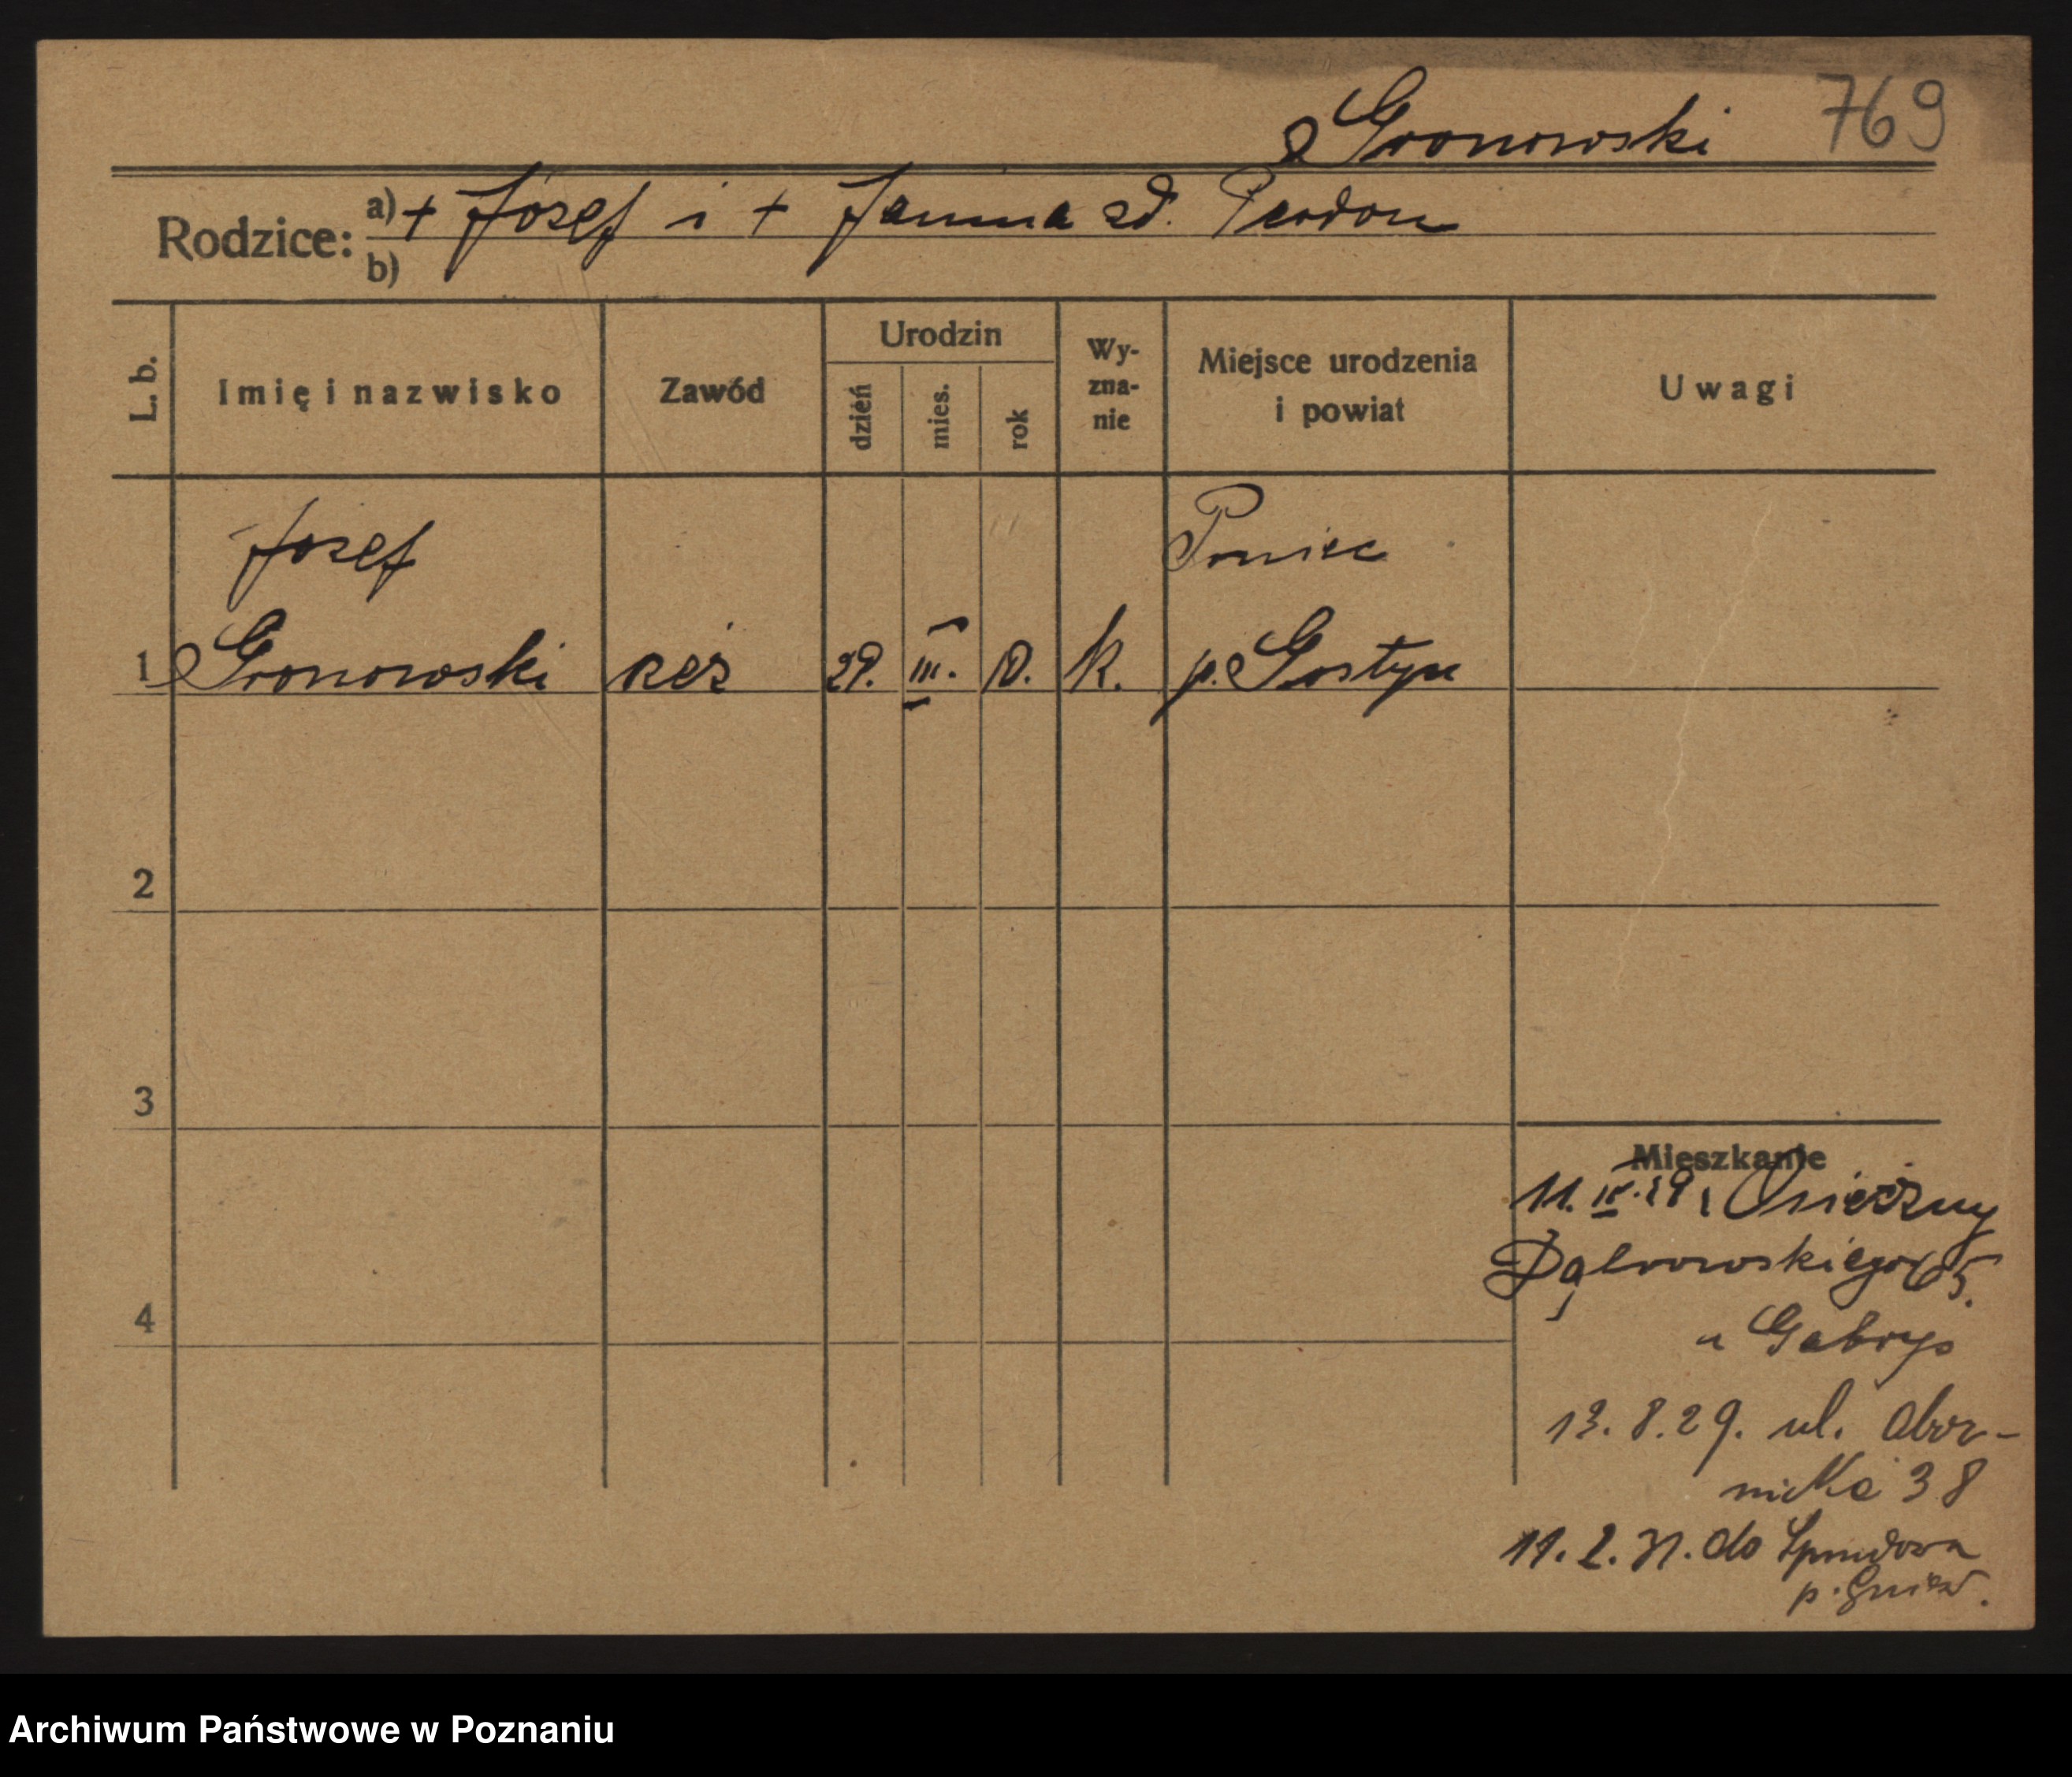 Gronowski 769
Rodzice: a) + Józef i + Janina zd.
b)
L. b. Imię i nazwisko Zawód Urodzin dzień mies. rok Wy-zna-nie Miejsce urodzenia i powiat Uwagi
Józef Poniec
1 Gronowski rzeź 29. III. 10. k. p. Gostyn
2
3
Mieszkanie
11. IV. 29
Dąbrowskiego 65.
4
u Gabrys
13. 8. 29. ul. Obor-
nicka 38
11. 2. 31. do
p.
Archiwum Państwowe w Poznaniu